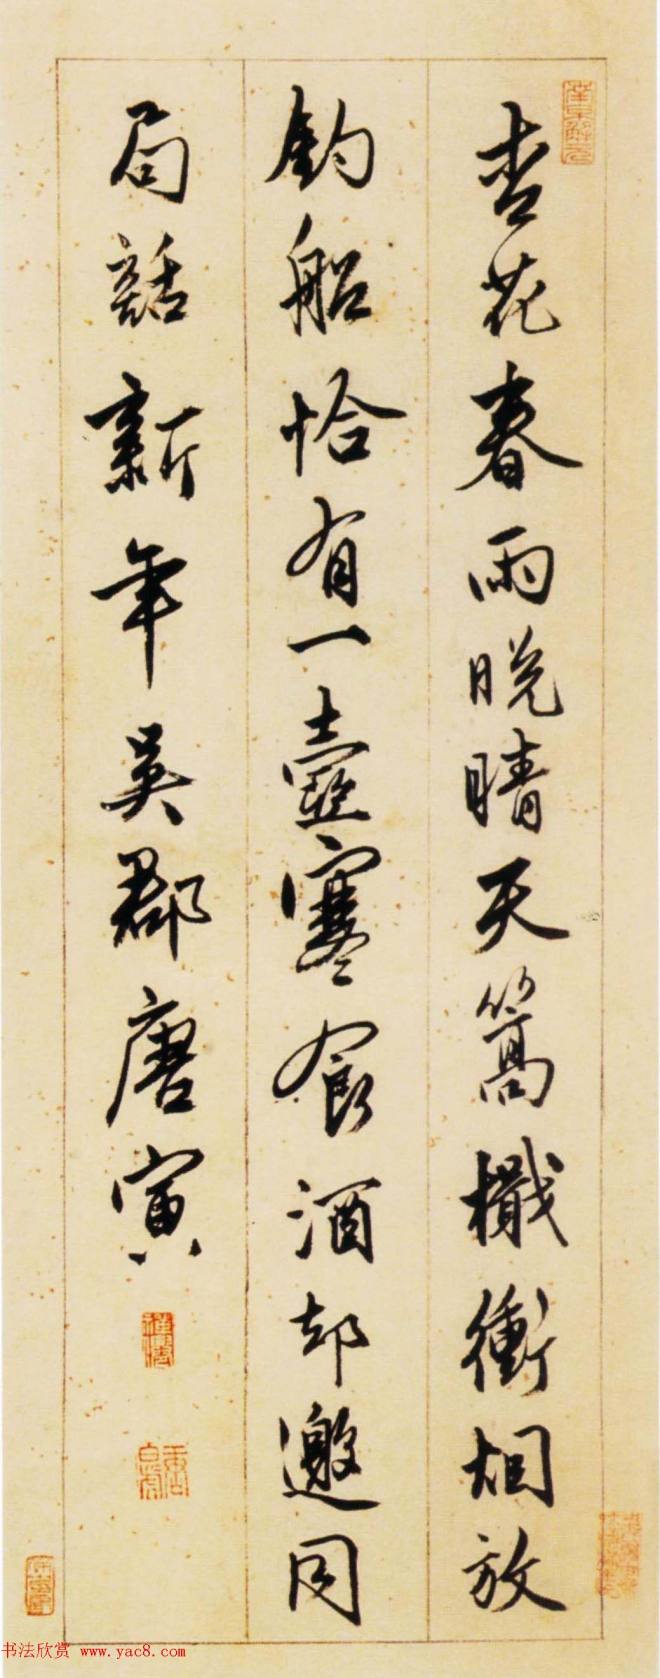 杏花春雨晚晴天篙檝衝烟放
釣船恰有一壺寒食酒却邀同
局話新年吳郡唐寅
書法欣赏 www.yac8.com